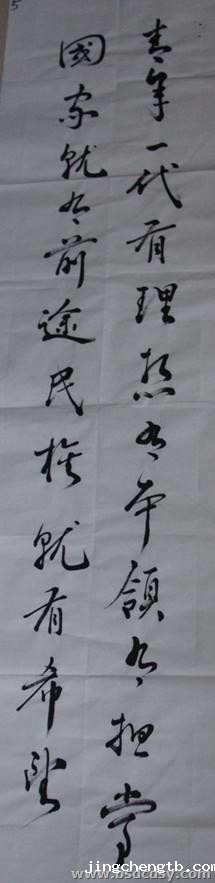 青年一代有理想有本领有担当
國家就有前途民族就有希望
5
www.bsdcdsy.com
jingchengtb.com